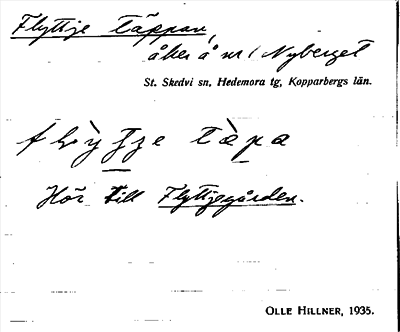 Flyttje täppan,
åker å nr 1 Nyberget
St. Skedvi sn, Hedemora tg, Kopparbergs län.
tàpa
Hör till Flyttjegården.
OLLE HILLNER, 1935.